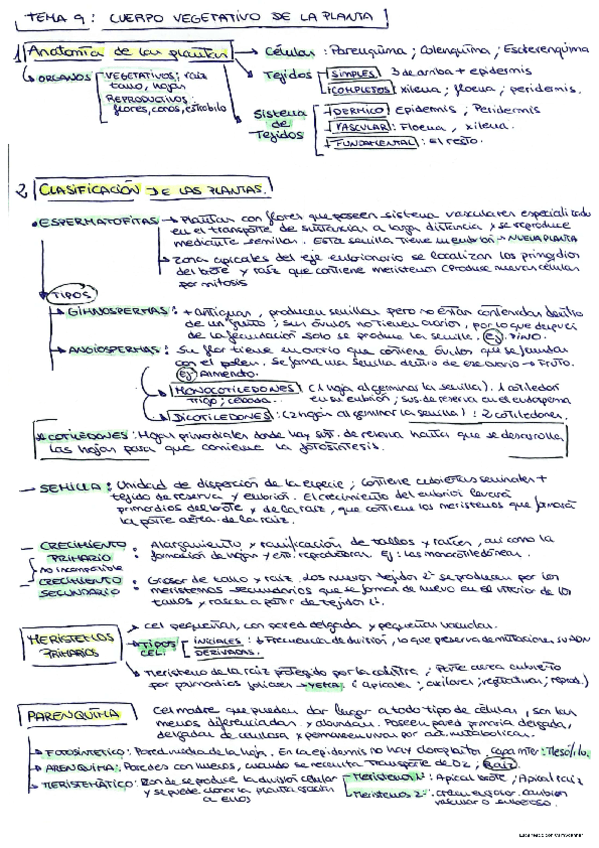 TEMA 9: CUERPO VEGETATIVO DE LA PLANTA
1 Anatomía de las plantas → Células: Parenquima; Colenquima; Esclerenquima
ORGANOS VEGETATIVOS: raíz tallo, hojas
REPRODUCTIVOS: flores, conos, estróbilo
Tejidos SIMPLES 3 de arriba + epidermis
COMPLETOS xilema; floema; peridermis.
Sistema de Tejidos
DERMICO Epidermis; Peridermis
VASCULAR: Floema, xilema.
FUNDAMENTAL: El resto.
2 CLASIFICACIÓN DE LAS PLANTAS.
• ESPERMATOFITAS → Plantas con flores que poseen sistema vasculares especializado
en el transporte de sustancias a larga distancia y se reproduce
mediante semillas. Esta semilla tiene un embrión → NUEVA PLANTA
→ Zona apicales del eje embrionario se localizan los primordios
del brote y raíz que contiene meristemos (Produce nuevas células
por mitosis
TIPOS
→ GIMNOSPERMAS: + antiguas, producen semillas pero no están contenidas dentro
de un fruto; sus óvulos no tienen ovarios, por lo que después
de la fecundación solo se produce la semilla. Ej: PINO.
→ ANGIOSPERMAS: Su flor tiene un ovario que contiene óvulos que se fecundan
con el polen. Se forma una semilla dentro de ese ovario → FRUTO.
Ej: Almendro.
MONOCOTILEDONES (1 hoja al germinar la semilla). 1 cotiledón
trigo; cebada. en su embrión; sus. de reserva en el endosperma
DICOTILEDONES: (2 hojas al germinar la semilla): 2 cotiledones.
* COTILEDONES: Hojas primordiales donde hay sust. de reserva hasta que se desarrolla
las hojas para que comience la fotosíntesis.
- SEMILLA: Unidad de dispersión de la especie; contiene cubiertas seminales +
tejido de reserva y embrión. El crecimiento del embrión llevará
primordios del brote y de la raíz, que contiene los meristemos que formará
la parte aérea de la raíz.
- CRECIMIENTO PRIMARIO: Alargamiento y ramificación de tallos y raíces, así como la
formación de hojas y est. reproductoras. Ej: las monocotiledóneas.
no incompatible
- CRECIMIENTO SECUNDARIO: Grosor de tallo y raíz. Los nuevos tejidos 2º se producen por los
meristemos secundarios que se forman de nuevo en el interior de los
tallos y raíces a partir de tejidos 1º.
MERISTEMOS PRIMARIOS
→ Cel pequeñas, con pared delgada y pequeñas vacuolas.
→ TIPOS CEL. INICIALES: ↓ Frecuencia de división, lo que preserva de mutaciones su ADN
DERIVADAS.
→ Meristemo de la raíz protegido por la caliptra; Parte aérea cubierto
por primordios foliares → YEMA: (apicales; axilares; vegetativas; reprod.)
PARENQUIMA Cel madre que pueden dar lugar a todo tipo de células, son las
menos diferenciadas y abundan. Poseen pared primaria delgada,
delgadas de celulosa y permanecen vivas por act. metabolicas.
→ FOTOSINTÉTICO: Pared media de la hoja. En la epidermis no hay cloroplastos, capa inter: Mesófilo.
→ AERENQUIMA: Paredes con huecos, cuando se necesita transporte de O2; Raíz
→ MERISTEMÁTICO: Donde se produce la división celular
y se puede clonar la planta gracias
a ellos
→ Meristemo 1º: Apical brote; Apical raíz
→ Meristemos 2º: crecim. grosor. cambium
vascular o suberoso.